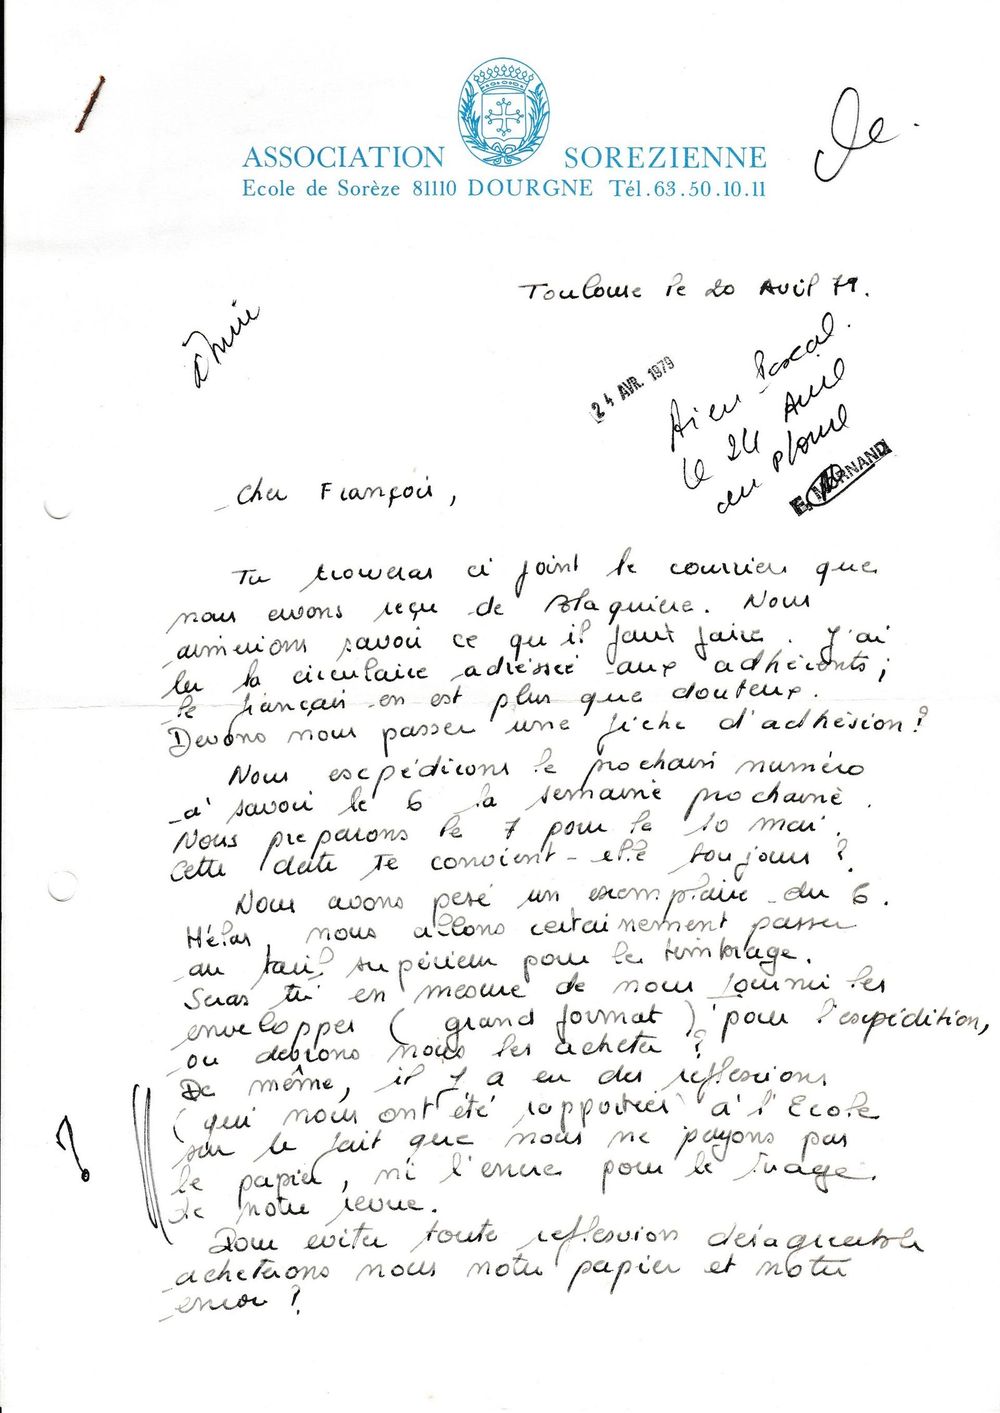 ASSOCIATION SOREZIENNE
Ecole de Sorèze 81110 DOURGNE Tél.63.50.10.11
Toulouse le 20 Avril 79.
24 AVR. 1979
Pascal.
le 24 Avril
E. MORNAND
Cher François,
Tu trouveras ci joint le courrier que
nous avons reçu de Blaquière. Nous
aimerions savoir ce qu'il faut faire. J'ai
lu la circulaire adressée aux adhérents ;
le français en est plus que douteux.
Devons nous passer une fiche d'adhésion ?
Nous expédierons le prochain numéro
à savoir le 6 la semaine prochaine.
Nous préparons le 7 pour le 10 mai.
Cette date te convient-elle toujours ?
Nous avons pesé un exemplaire du 6.
Hélas, nous allons certainement passer
au tarif supérieur pour le timbrage.
Seras tu en mesure de nous fournir les
enveloppes ( grand format ) pour l'expédition,
ou devrons nous les acheter ?
De même, il y a eu des réflexions
(qui nous ont été rapportées) à l'Ecole
sur le fait que nous ne payons pas
le papier, ni l'encre pour le tirage
de notre revue.
?
Pour éviter toute réflexion désagréable
acheterons nous notre papier et notre
encre ?